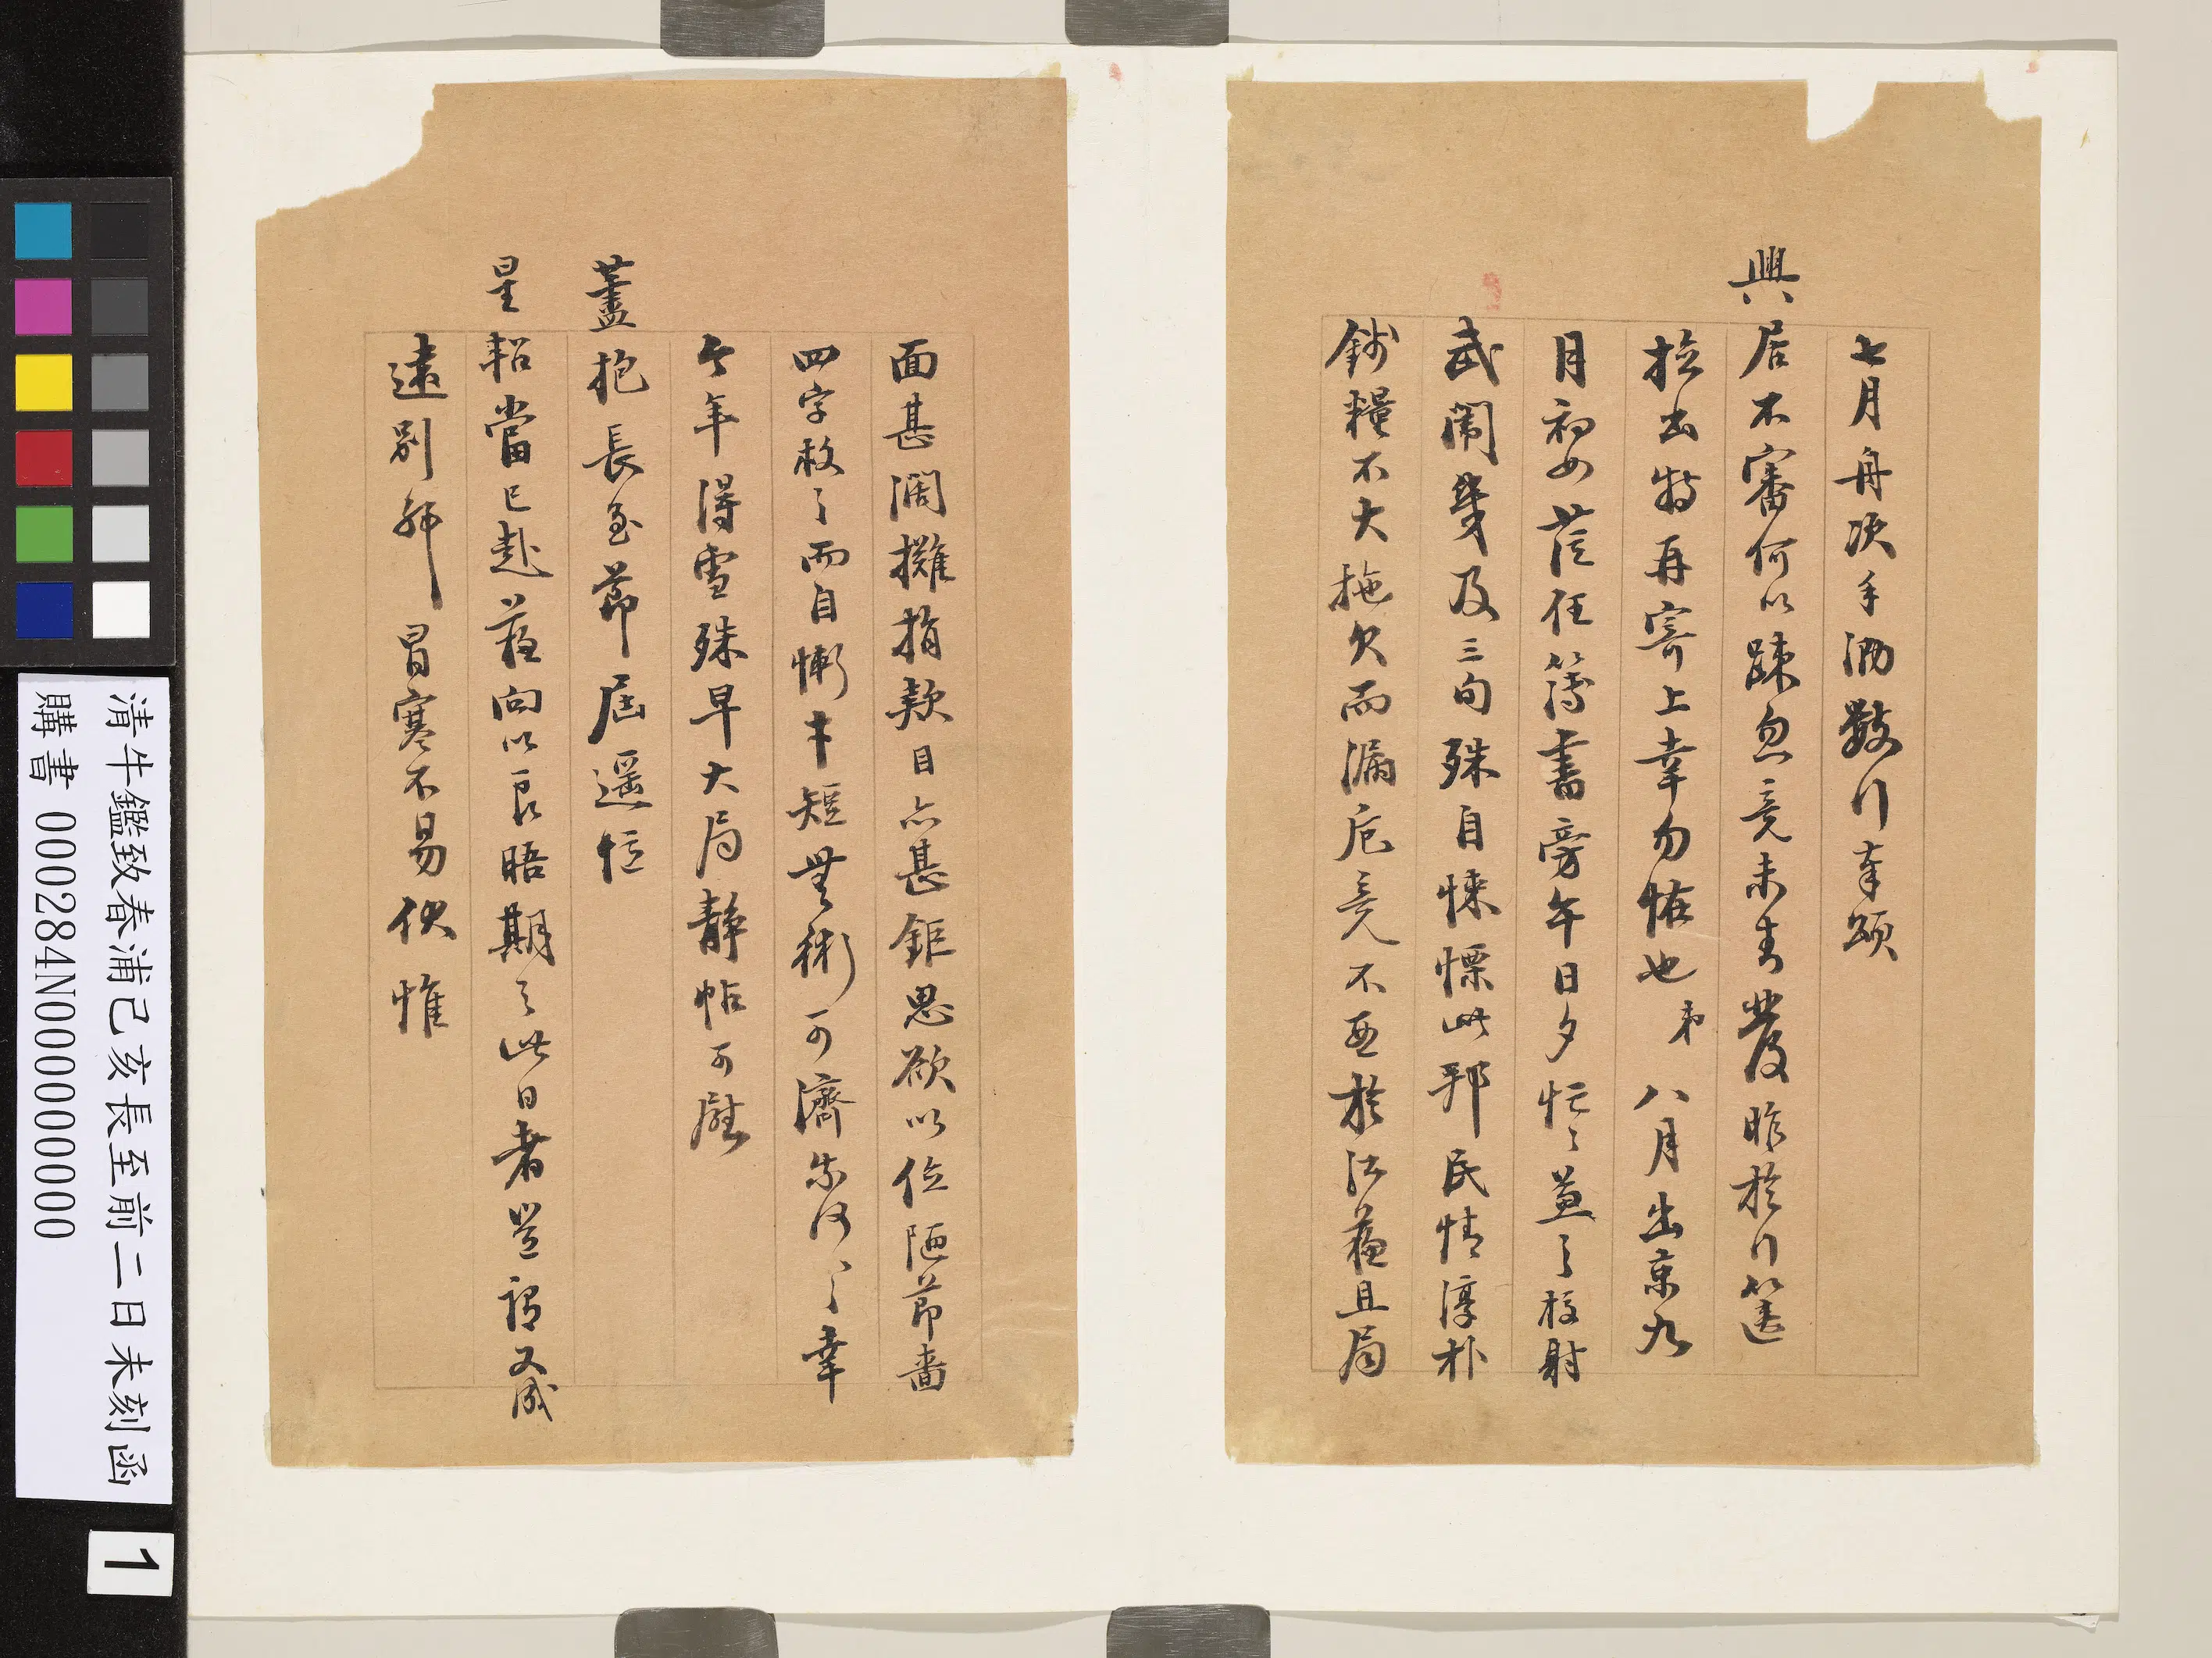 七月舟次手泐數行奉頌
興居不審何以疎忽竟未書發昨於行篋
撿出特再寄上幸勿怪也弟八月出京九
月初如莅任簿書旁午日夕忙忙兼之校射
武闈幾及三旬殊自悚慄此邦民情淳朴
錢糧不大拖欠而漏卮竟不亞於江蘇且局
面甚濶攤捐款目亦甚鉅思欲以位陋節嗇
四字救之而自慚才短無術可濟奈何奈何幸
今年得雪殊早大局靜帖可慰
藎抱長至節屆遥恒
星軺當已赴蘇向以良晤期之此日者豈謂又成
遠別耶冒寒不易伏惟
清牛鑑致春浦己亥長至前二日未刻函
購書 000284N000000000
1